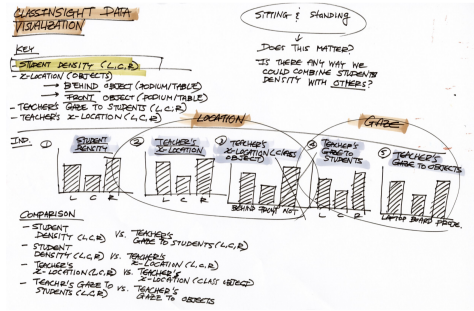 CLASSINSIGHT DATA
VISUALIZATION
KEY
- STUDENT DENSITY (L,C,R)
- X-LOCATION (OBJECTS)
→ BEHIND OBJECT (PODIUM/TABLE)
→ FRONT OBJECT (PODIUM/TABLE)
- TEACHER'S GAZE TO STUDENTS (L,C,R)
- TEACHER'S X-LOCATION (L,C,R)
SITTING & STANDING
DOES THIS MATTER?
- IS THERE ANY WAY WE
COULD COMBINE STUDENTS
DENSITY WITH OTHERS?
LOCATION
GAZE
IND.
① STUDENT
DENSITY
L C R
② TEACHER'S
X-LOCATION
L C R
③ TEACHER'S
X-LOCATION (CLASS
OBJECT)
BEHIND FRONT NOT
④ TEACHER'S
GAZE TO
STUDENTS
L C R
⑤ TEACHER'S
GAZE TO OBJECTS
LAPTOP BOARD
COMPARISON
- STUDENT
DENSITY (L,C,R) VS. TEACHER'S
GAZE TO STUDENTS (L,C,R)
- STUDENT
DENSITY (L,C,R) VS. TEACHER'S
X-LOCATION (L,C,R)
- TEACHER'S
X-LOCATION (L,C,R) VS. TEACHER'S
X-LOCATION (CLASS OBJECT)
- TEACHER'S GAZE TO
STUDENTS (L,C,R) VS. TEACHER'S
GAZE TO OBJECTS